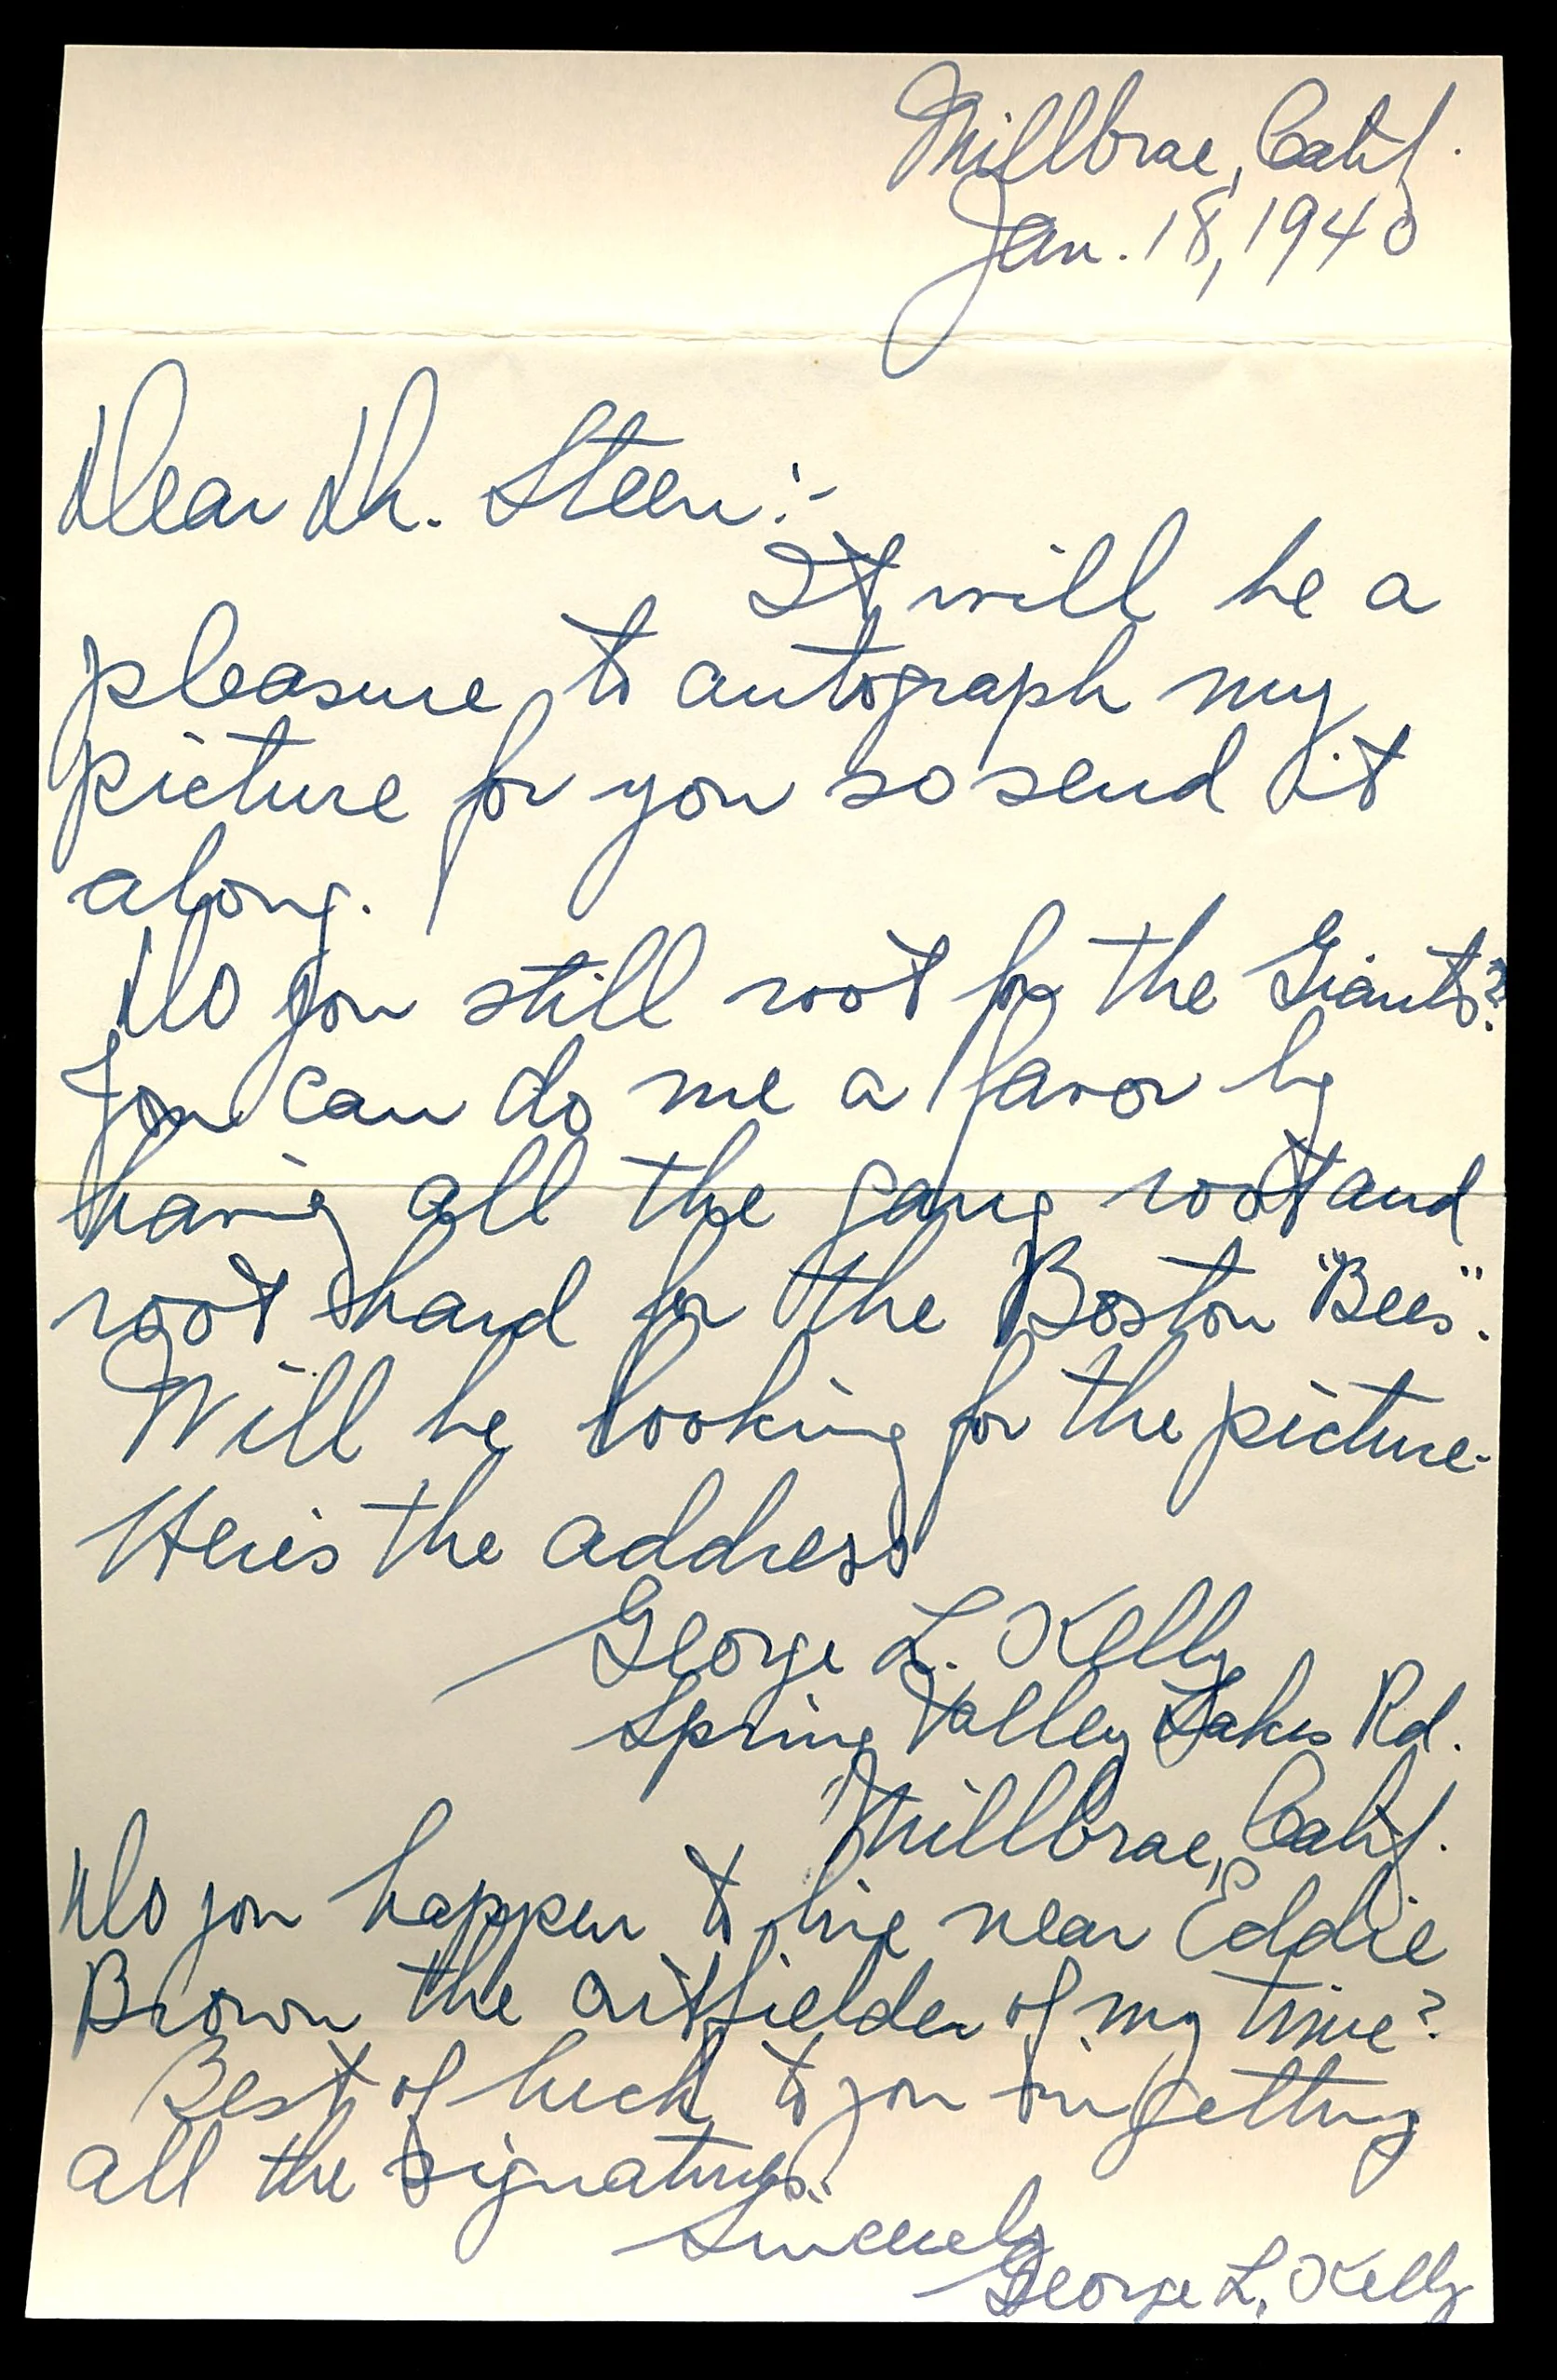 Millbrae, Calif.
Jan. 18, 1940
Dear Dr. Steen:-
It will be a
pleasure to autograph my
picture for you so send it
along.
Do you still root for the Giants?
You can do me a favor by
having all the gang root and
root hard for the Boston "Bees".
Will be looking for the picture.
Here's the address
George L. Kelly
Spring Valley Lakes Rd.
Millbrae, Calif.
Do you happen to live near Eddie
Brown the outfielder of my time?
Best of luck to you in getting
all the signatures.
Sincerely
George L. Kelly